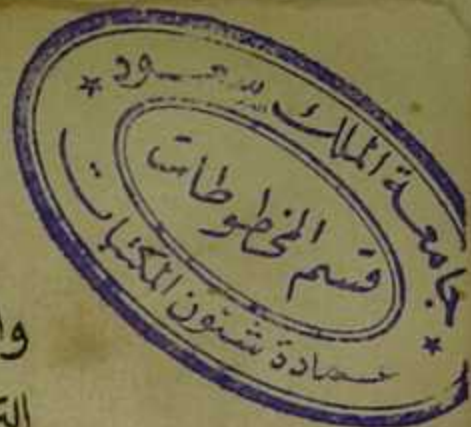 جامعة الملك سعود
قسم المخطوطات
عمادة شئون المكتبات
وا
الت